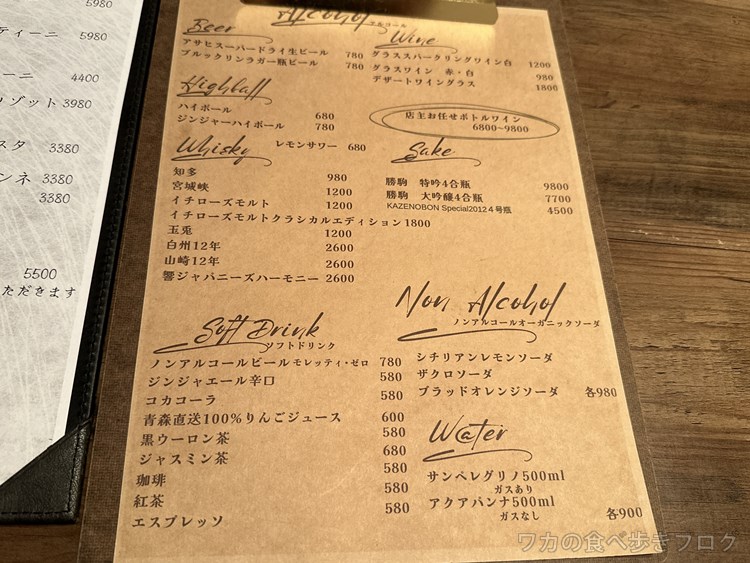 5980
ティーニ 5980
ーニ 4400
リゾット 3980
スタ 3380
ンネ 3380
3380
5500
ただきます
Alcohol
アルコール
Beer
アサヒスーパードライ生ビール 780
ブルックリンラガー瓶ビール 780
Wine
グラススパークリングワイン白 1200
グラスワイン 赤・白 980
デザートワイングラス 1800
店主お任せボトルワイン
6800~9800
Highball
ハイボール 680
ジンジャーハイボール 780
レモンサワー 680
Whisky
知多 980
宮城峡 1200
イチローズモルト 1200
イチローズモルトクラシカルエディション 1800
玉兎 1200
白州12年 2600
山崎12年 2600
響ジャパニーズハーモニー 2600
Sake
勝駒 特吟4合瓶 9800
勝駒 大吟醸4合瓶 7700
KAZENOBON Special2012 4号瓶 4500
Non Alcohol
ノンアルコールオーガニックソーダ
シチリアンレモンソーダ
ザクロソーダ
ブラッドオレンジソーダ 各980
Soft Drink
ソフトドリンク
ノンアルコールビールモレッティ・ゼロ 780
ジンジャエール辛口 580
コカコーラ 580
青森直送100%りんごジュース 600
黒ウーロン茶 580
ジャスミン茶 680
珈琲 580
紅茶 580
エスプレッソ 580
Water
サンペレグリノ500ml
ガスあり
アクアパンナ500ml
ガスなし
各900
ワカの食べ歩きブログ